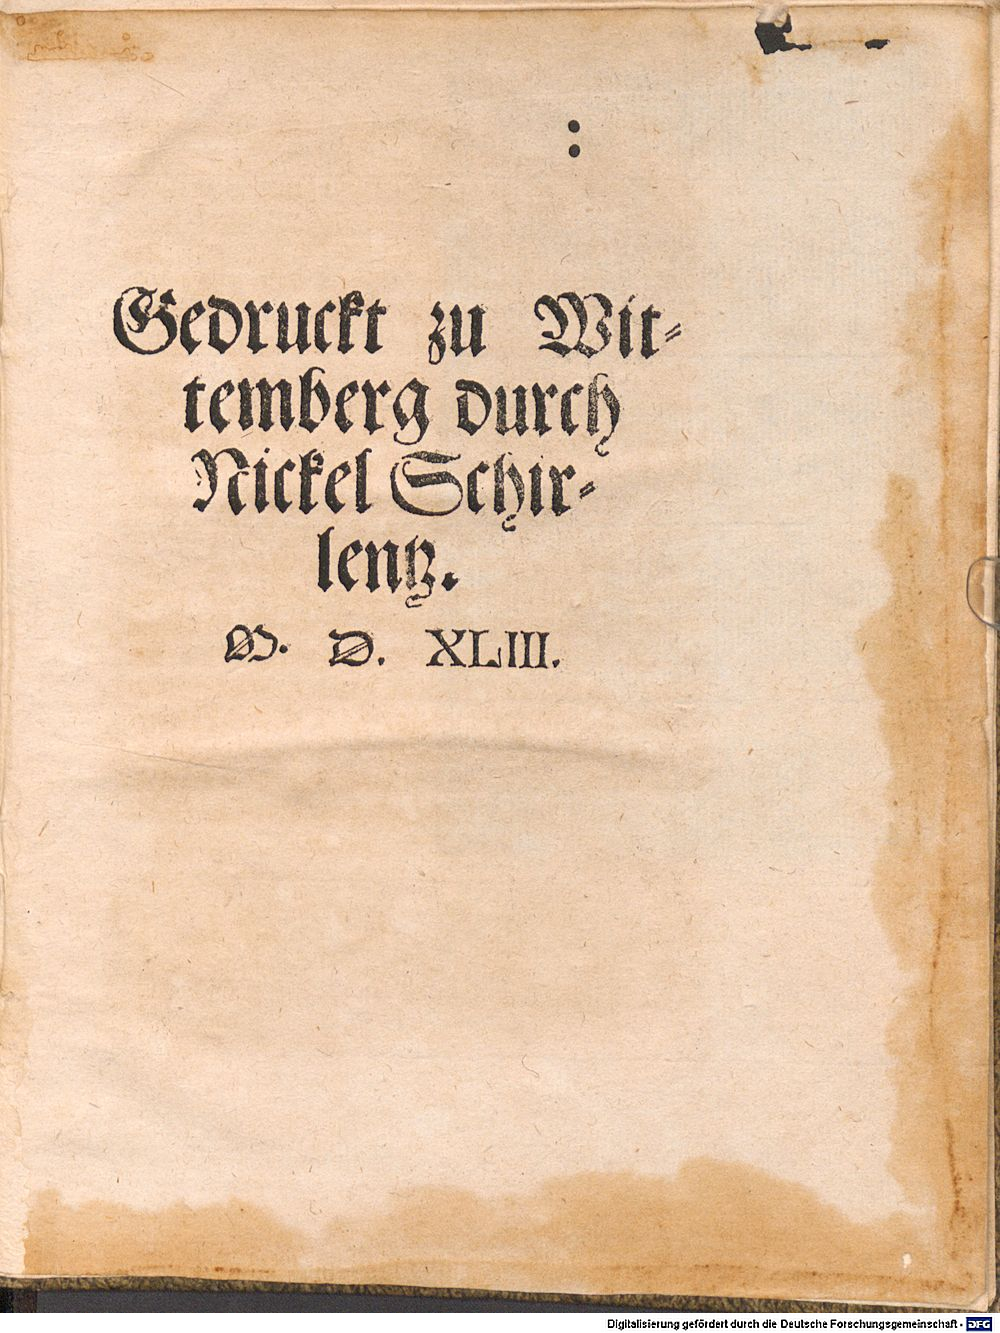 Gedruckt zu Wit-
temberg durch
Nickel Schir-
lentz.
M. D. XLIII.
Digitalisierung gefördert durch die Deutsche Forschungsgemeinschaft - DFG